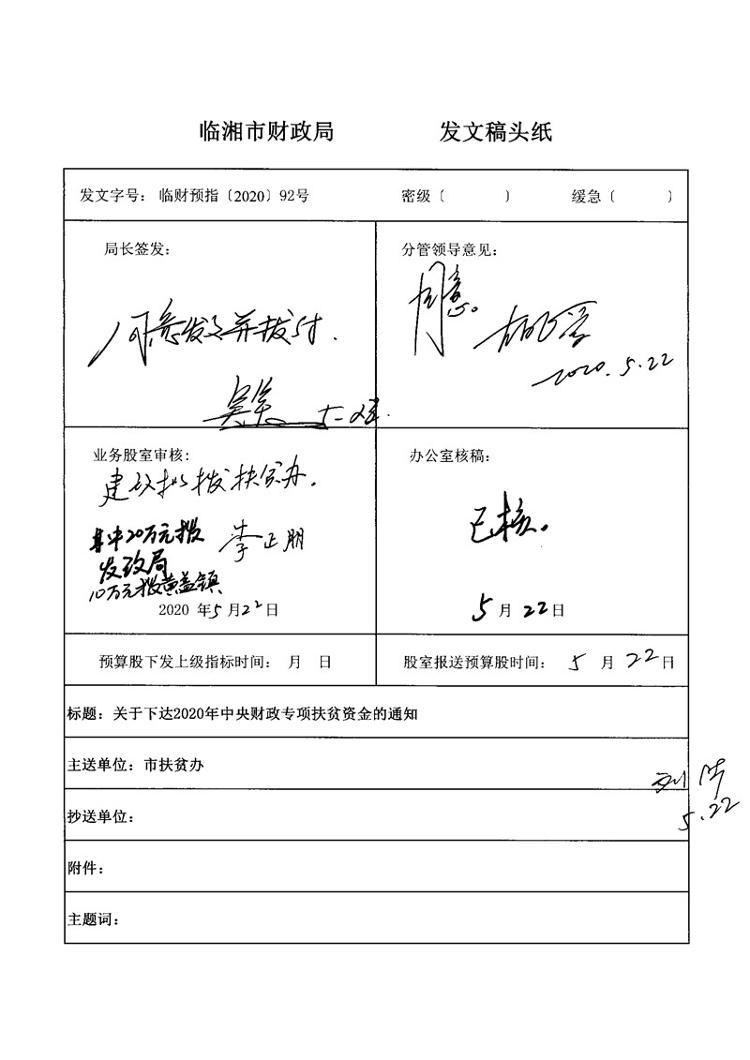 临湘市财政局 发文稿头纸
发文字号：临财预指〔2020〕92号 密级〔 〕 缓急〔 〕
局长签发：
同意发文并拨付.
分管领导意见：
同意。
2020.5.22
业务股室审核：
建议拟拨扶贫办.
其中20万元拨
发改局
10万元拨黄盖镇
李正朋
2020 年5月22日
办公室核稿：
已核。
5月22日
预算股下发上级指标时间： 月 日
股室报送预算股时间： 5月22日
标题：关于下达2020年中央财政专项扶贫资金的通知
主送单位：市扶贫办
5.22
抄送单位：
附件：
主题词：